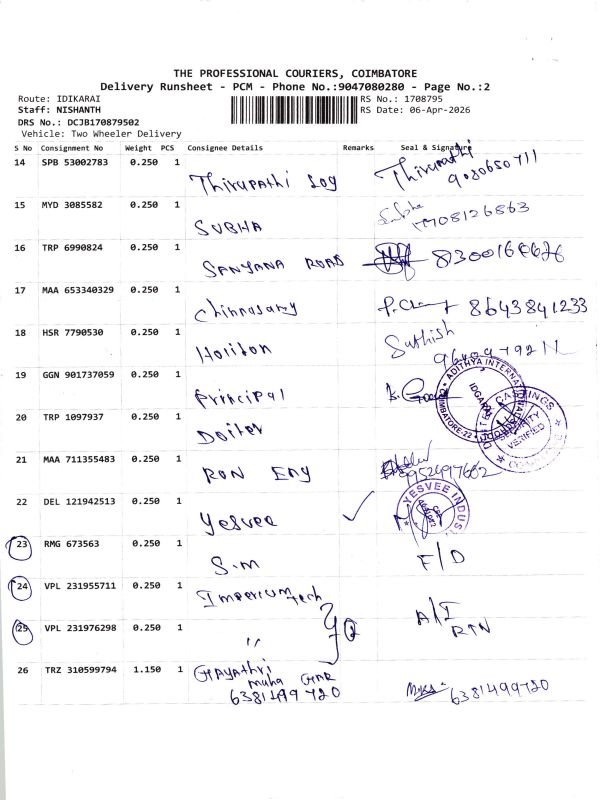 THE PROFESSIONAL COURIERS, COIMBATORE
Delivery Runsheet - PCM - Phone No.:9047080280 - Page No.:2
Route: IDIKARAI
RS No.: 1708795
Staff: NISHANTH
RS Date: 06-Apr-2026
DRS No.: DCJB170879502
Vehicle: Two Wheeler Delivery
S No Consignment No Weight PCS Consignee Details Remarks Seal & Signature
14 SPB 53002783 0.250 1 Thirupathi Log Thirupathi
9080650711
15 MYD 3085582 0.250 1 SUBHA Subha
16 TRP 6990824 0.250 1 SANJANA ROAD
17 MAA 653340329 0.250 1 Chinnasamy 8643841233
18 HSR 7790530 0.250 1 Horizon Sathish
19 GGN 901737059 0.250 1 Principal
ADITHYA INTERNATIONAL
COIMBATORE-22
20 TRP 1097937 0.250 1
CASTINGS
SECURITY
VERIFIED
21 MAA 711355483 0.250 1 RON ENG
9952497662
22 DEL 121942513 0.250 1 Yesvee ✓
YESVEE INDUS
23 RMG 673563 0.250 1 S.M F/D
24 VPL 231955711 0.250 1 Imperium tech A/I
RTN
25 VPL 231976298 0.250 1 "
26 TRZ 310599794 1.150 1 GAYAthri
maha
6381499720 6381499720